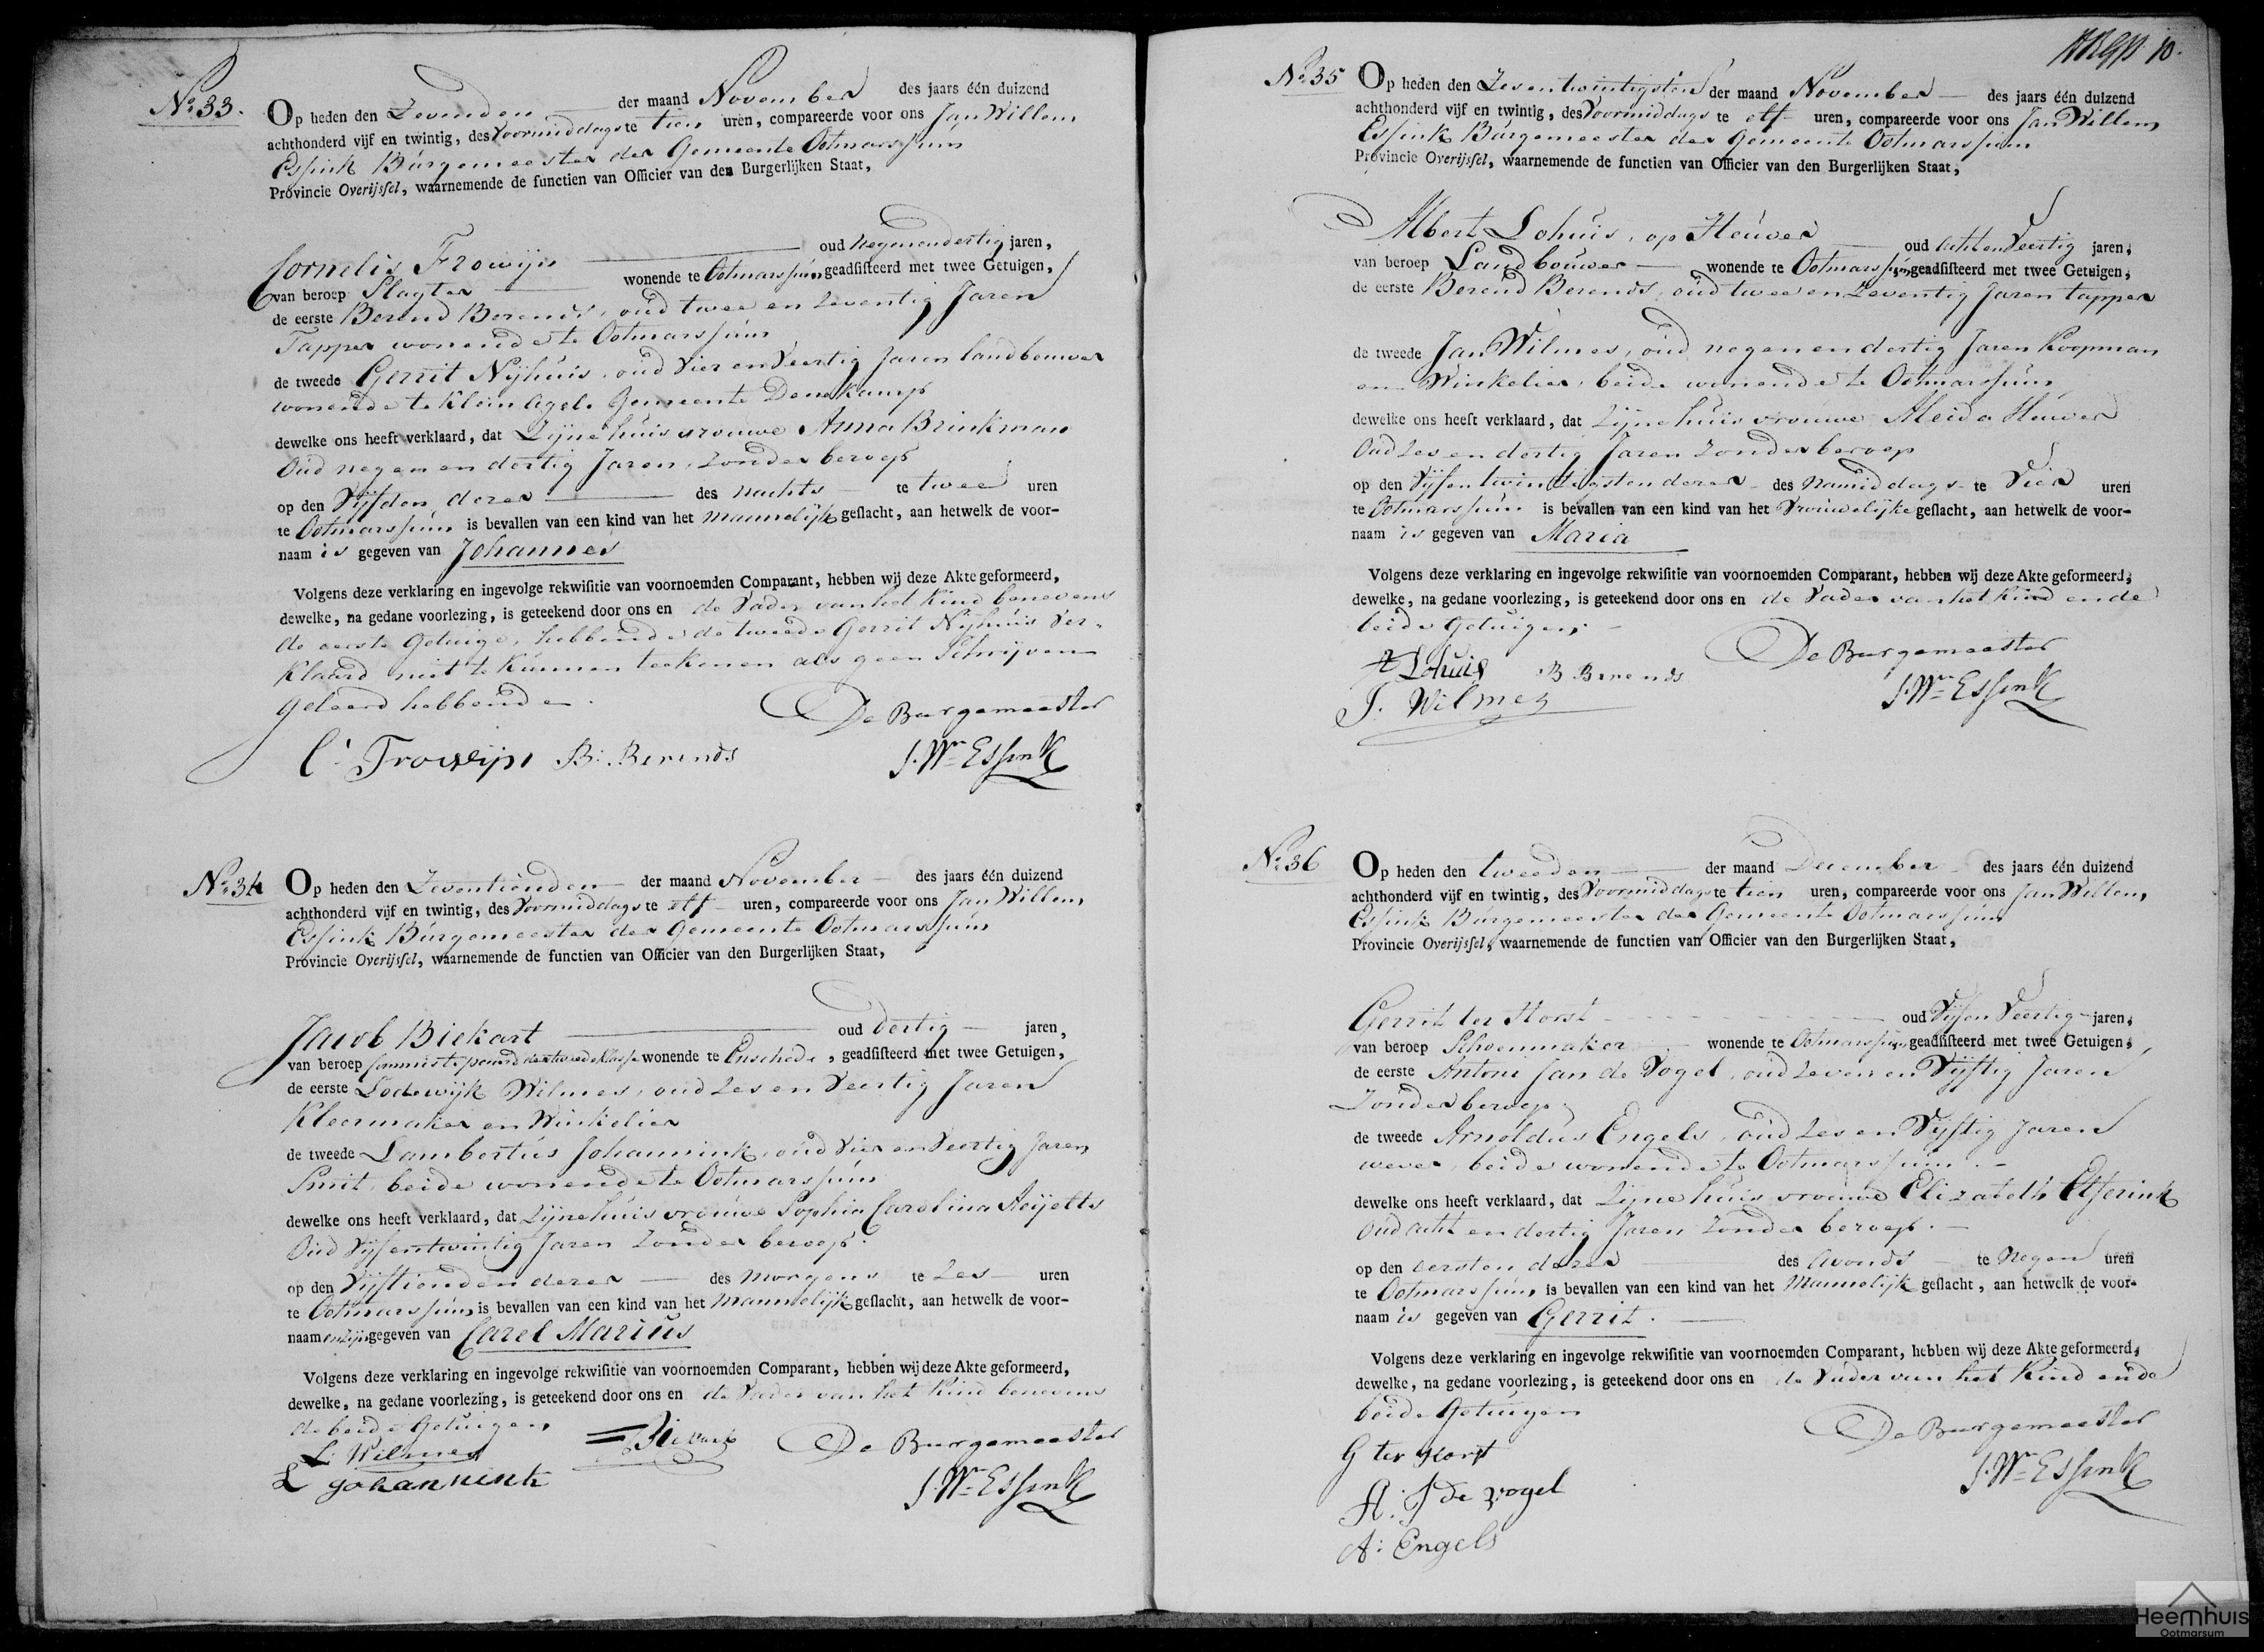 No 33.
Op heden den Zevenden der maand November des jaars één duizend
achthonderd vijf en twintig, des Voormiddags te tien uren, compareerde voor ons Jan Willem
Essink Burgemeester der Gemeente Ootmarssum
Provincie Overijssel, waarnemende de functien van Officier van den Burgerlijken Staat,
Cornelis Frowijn oud Negenendertig jaren,
van beroep Slagter wonende te Ootmarssum geadsisteerd met twee Getuigen,
de eerste Berend Berends, oud twee en Zeventig Jaren
Tapper wonende te Ootmarssum
de tweede Gerrit Nijhuis, oud Vier en Veertig Jaren landbouwer
wonende te Klein Agelo Gemeente Denekamp
dewelke ons heeft verklaard, dat Zijne huisvrouwe Anna Brinkman
Oud negen en dertig Jaren, Zonder beroep
op den Vijfden dezer des nachts te twee uren
te Ootmarssum is bevallen van een kind van het mannelijk geslacht, aan hetwelk de voor-
naam is gegeven van Johannes
Volgens deze verklaring en ingevolge rekwisitie van voornoemden Comparant, hebben wij deze Akte geformeerd,
dewelke, na gedane voorlezing, is geteekend door ons en de Vader van het Kind benevens
de eerste Getuige, hebbende de tweede Gerrit Nijhuis Ver-
klaard niet te kunnen teekenen als geen Schrijven
geleerd hebbende.
De Burgemeester
C. Frowijn B. Berends J. Wm Essink
No 34
Op heden den Zeventienden der maand November des jaars één duizend
achthonderd vijf en twintig, des Voormiddags te elf uren, compareerde voor ons Jan Willem
Essink Burgemeester der Gemeente Ootmarssum
Provincie Overijssel, waarnemende de functien van Officier van den Burgerlijken Staat,
Jacob Biekart oud Dertig jaren,
van beroep Commies te paard der tweede Klasse wonende te Enschede, geadsisteerd met twee Getuigen,
de eerste Lodewijk Wilmes, oud Zes en Veertig Jaren
Kleermaker en Winkelier
de tweede Lambertus Johannink, oud Vier en Veertig Jaren
Smit, beide wonende te Ootmarssum
dewelke ons heeft verklaard, dat Zijne huisvrouwe Sophia Carolina
Oud Vijfentwintig Jaren Zonder beroep.
op den Vijftienden dezer des Morgens te Zes uren
te Ootmarssum is bevallen van een kind van het Mannelijk geslacht, aan hetwelk de voor-
naamen zijn gegeven van Carel Marius
Volgens deze verklaring en ingevolge rekwisitie van voornoemden Comparant, hebben wij deze Akte geformeerd,
dewelke, na gedane voorlezing, is geteekend door ons en de Vader van het Kind benevens
de beide Getuigen
L. Wilmes Biekart De Burgemeester
L Johannink J. Wm Essink
10.
No 35
Op heden den Zesentwintigsten der maand November des jaars één duizend
achthonderd vijf en twintig, des Voormiddags te elf uren, compareerde voor ons Jan Willem
Essink Burgemeester der Gemeente Ootmarssum
Provincie Overijssel, waarnemende de functien van Officier van den Burgerlijken Staat,
Albert Lohuis, op Heuver oud acht en Veertig jaren,
van beroep Landbouwer wonende te Ootmarssum geadsisteerd met twee Getuigen,
de eerste Berend Berends, oud twee en Zeventig Jaren tapper
de tweede Jan Wilmes, oud negen en dertig Jaren Koopman
en Winkelier, beide wonende te Ootmarssum
dewelke ons heeft verklaard, dat Zijne huisvrouwe Aleida Heuver
Oud Zes en dertig Jaren Zonder beroep
op den Vijfentwintigsten dezer des Namiddags te Vier uren
te Ootmarssum is bevallen van een kind van het Vrouwelijke geslacht, aan hetwelk de voor-
naam is gegeven van Maria
Volgens deze verklaring en ingevolge rekwisitie van voornoemden Comparant, hebben wij deze Akte geformeerd,
dewelke, na gedane voorlezing, is geteekend door ons en de Vader van het Kind en de
beide Getuigen,
De Burgemeester
A Lohuis B Berends
J. Wilmes J. Wm Essink
No 36
Op heden den tweeden der maand December des jaars één duizend
achthonderd vijf en twintig, des Voormiddags te tien uren, compareerde voor ons Jan Willem
Essink Burgemeester der Gemeente Ootmarssum
Provincie Overijssel, waarnemende de functien van Officier van den Burgerlijken Staat,
Gerrit ter Horst oud Vijf en Veertig jaren,
van beroep Schoenmaker wonende te Ootmarssum geadsisteerd met twee Getuigen,
de eerste Antoni Jan de Vogel, oud Zeven en Vijftig Jaren
Zonder beroep
de tweede Arnoldus Engels, oud Zes en Vijftig Jaren
wever, beide wonende te Ootmarssum.
dewelke ons heeft verklaard, dat Zijne huisvrouwe Elizabeth Elferink
Oud acht en dertig Jaren Zonder beroep.
op den eersten dezer des Avonds te Negen uren
te Ootmarssum is bevallen van een kind van het Mannelijk geslacht, aan hetwelk de voor-
naam is gegeven van Gerrit.
Volgens deze verklaring en ingevolge rekwisitie van voornoemden Comparant, hebben wij deze Akte geformeerd,
dewelke, na gedane voorlezing, is geteekend door ons en de Vader van het Kind en de
beide Getuigen
De Burgemeester
G ter Horst
J. Wm Essink
A: J de Vogel
A: Engels
Heemhuis
Ootmarsum